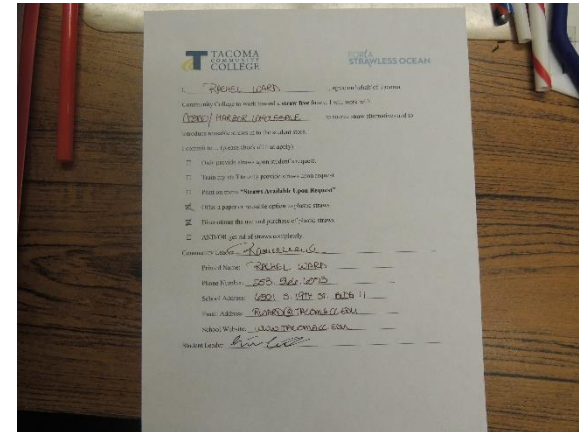 TACOMA
COMMUNITY
COLLEGE
FOR A
STRAWLESS OCEAN
I, RACHEL WARD, agree on behalf of Tacoma
Community College to work toward a straw free future. I will work with
COSTCO / HARBOR WHOLESALE to source straw alternatives and to
introduce to the student
I commit to... (please check all that apply)
Only provide straws upon student's request
Train to only provide straws upon request
Print on menu "Straws Available Upon Request"
Offer a paper or reusable option to plastic straws
Discontinue the use and purchase of plastic straws
AND/OR get rid of straws completely
Community Leader:
Printed Name: RACHEL WARD
Phone Number: 253.566.
School Address: 6501 S. 19th St. Bldg 11
Email Address: RWARD@TACOMACC.EDU
School Website: WWW.TACOMACC.EDU
Student Leader: